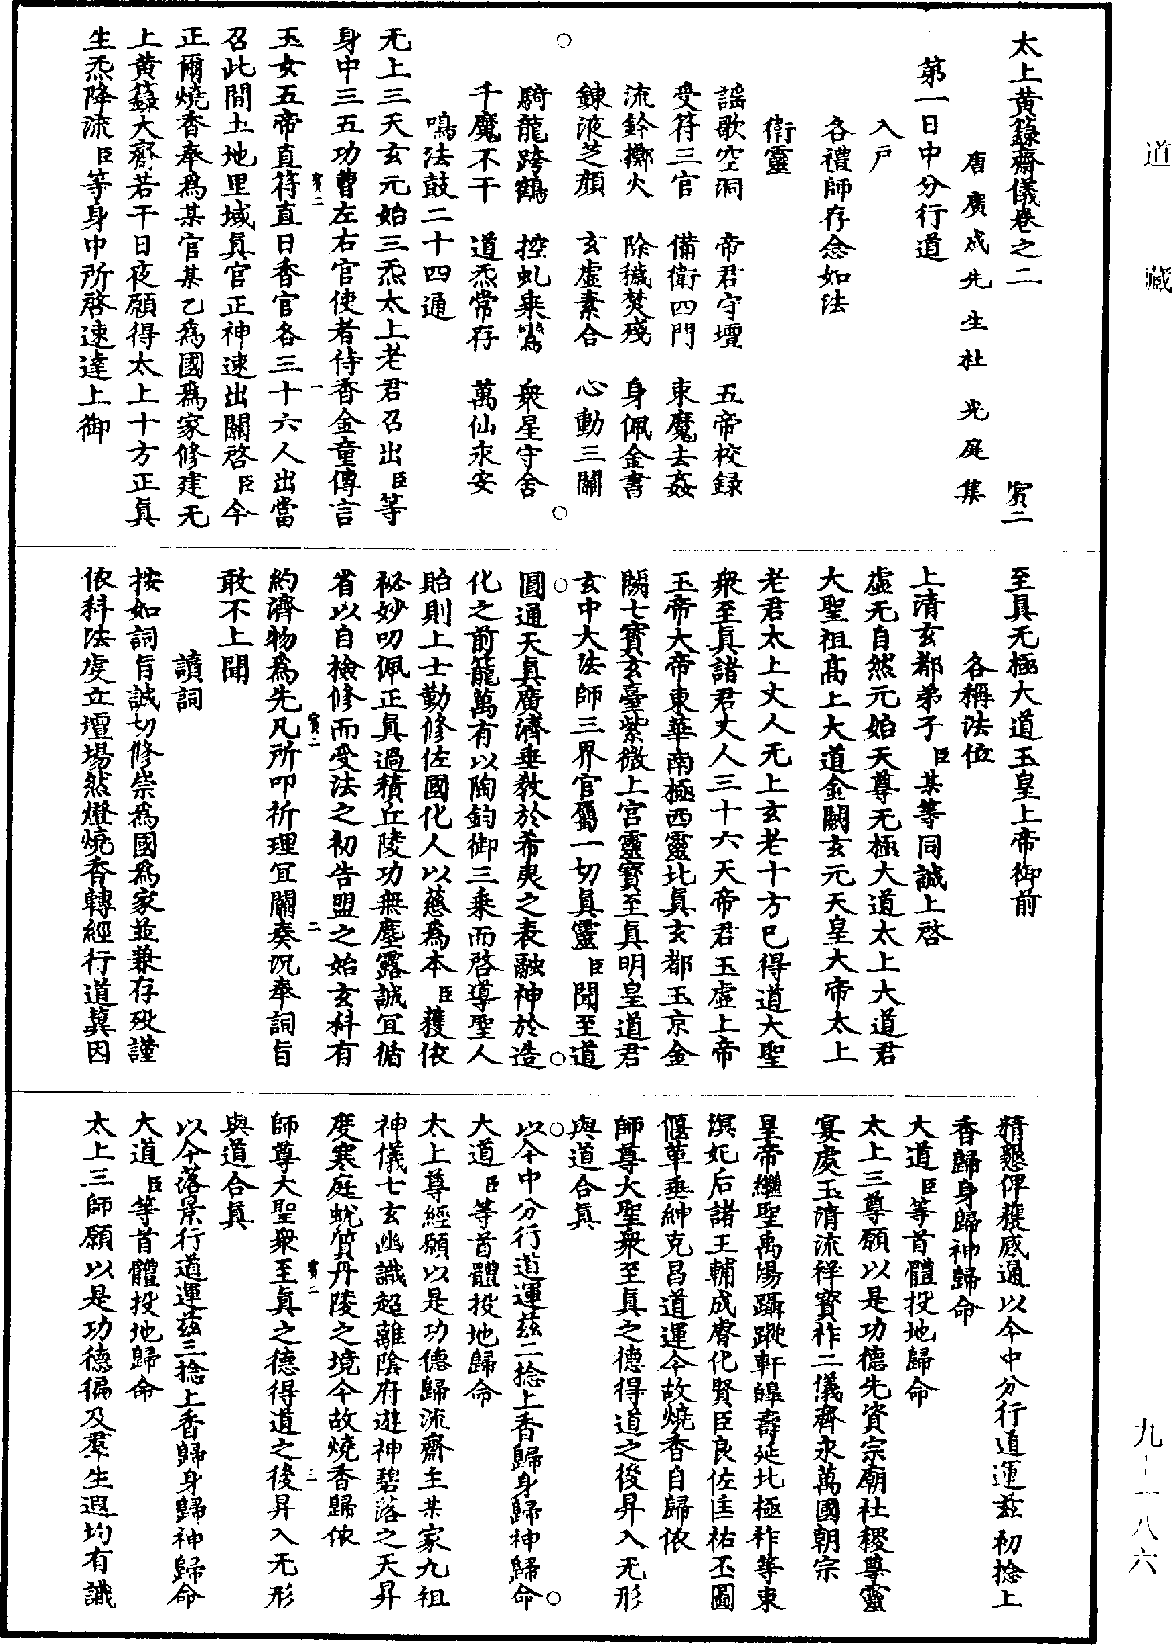 道藏
太上黃籙齋儀卷之二 賓二
唐廣成先生杜光庭集
第一日中分行道
入戶
各禮師存念如法
衛靈
謡歌空洞 帝君守壇 五帝校録
受符三官 備衛四門 束魔去姦
流鈴擲火 除穢焚殘 身佩金書
鍊液芝顔 玄虛素合 心動三關
騎龍跨鶴 控虬乗鸞 衆星守舍
千魔不干 道炁常存 萬仙永安
鳴法鼓二十四通
无上三天玄元始三炁太上老君召出臣等
身中三五功曹左右官使者侍香金童傳言
賓二 一
玉女五帝直符直日香官各三十六人出當
召此間土地里域真官正神速出關啓臣今
正爾燒香奉爲某官某乙爲國爲家修建无
上黃籙大齋若干日夜願得太上十方正真
生炁降流臣等身中所啓速達上御
至真无極大道玉皇上帝御前
各稱法位
上清玄都弟子臣某等同誠上啓
虛无自然元始天尊无極大道太上大道君
大聖祖髙上大道金闕玄元天皇大帝太上
老君太上丈人无上玄老十方已得道大聖
衆至真諸君丈人三十六天帝君玉虛上帝
玉帝大帝東華南極西靈北真玄都玉京金
闕七寳玄臺紫微上宮靈寳至真明皇道君
玄中大法師三界官屬一切真靈臣聞至道
圓通天真廣濟垂教於希夷之表融神於造
化之前籠萬有以陶鈞御三乗而啓導聖人
貽則上士勤修佐國化人以慈爲本臣獲依
祕妙叨佩正真過積丘陵功無塵露誠宜循
省以自檢修而受法之初告盟之始玄科有
賓二 二
約濟物爲先凡所叩祈理宜關奏况奉詞旨
敢不上聞
讀詞
按如詞旨誠切修崇爲國爲家並兼存殁謹
依科法虔立壇場然燈燒香轉經行道冀因
精懇俾獲感通以今中分行道運兹初捻上
香歸身歸神歸命
大道臣等首體投地歸命
太上三尊願以是功德先資宗廟社稷尊靈
宴處玉清流祥寳祚二儀齊永萬國朝宗
皇帝繼聖禹湯躡蹤軒皥壽延北極祚等東
溟妃后諸王輔成睿化賢臣良佐匡祐丕圖
偃革垂紳克昌道運今故燒香自歸依
師尊大聖衆至真之德得道之後昇入无形
與道合真
以今中分行道運兹二捻上香歸身歸神歸命
大道臣等首體投地歸命
太上尊經願以是功德歸流齋主某家九祖
神儀七玄幽識超離陰府遊神碧落之天昇
度寒庭蛻質丹陵之境今故燒香歸依
賓二 三
師尊大聖衆至真之德得道之後昇入无形
與道合真
以今落景行道運兹三捻上香歸身歸神歸命
大道臣等首體投地歸命
太上三師願以是功德徧及羣生遐均有識
九—一八六